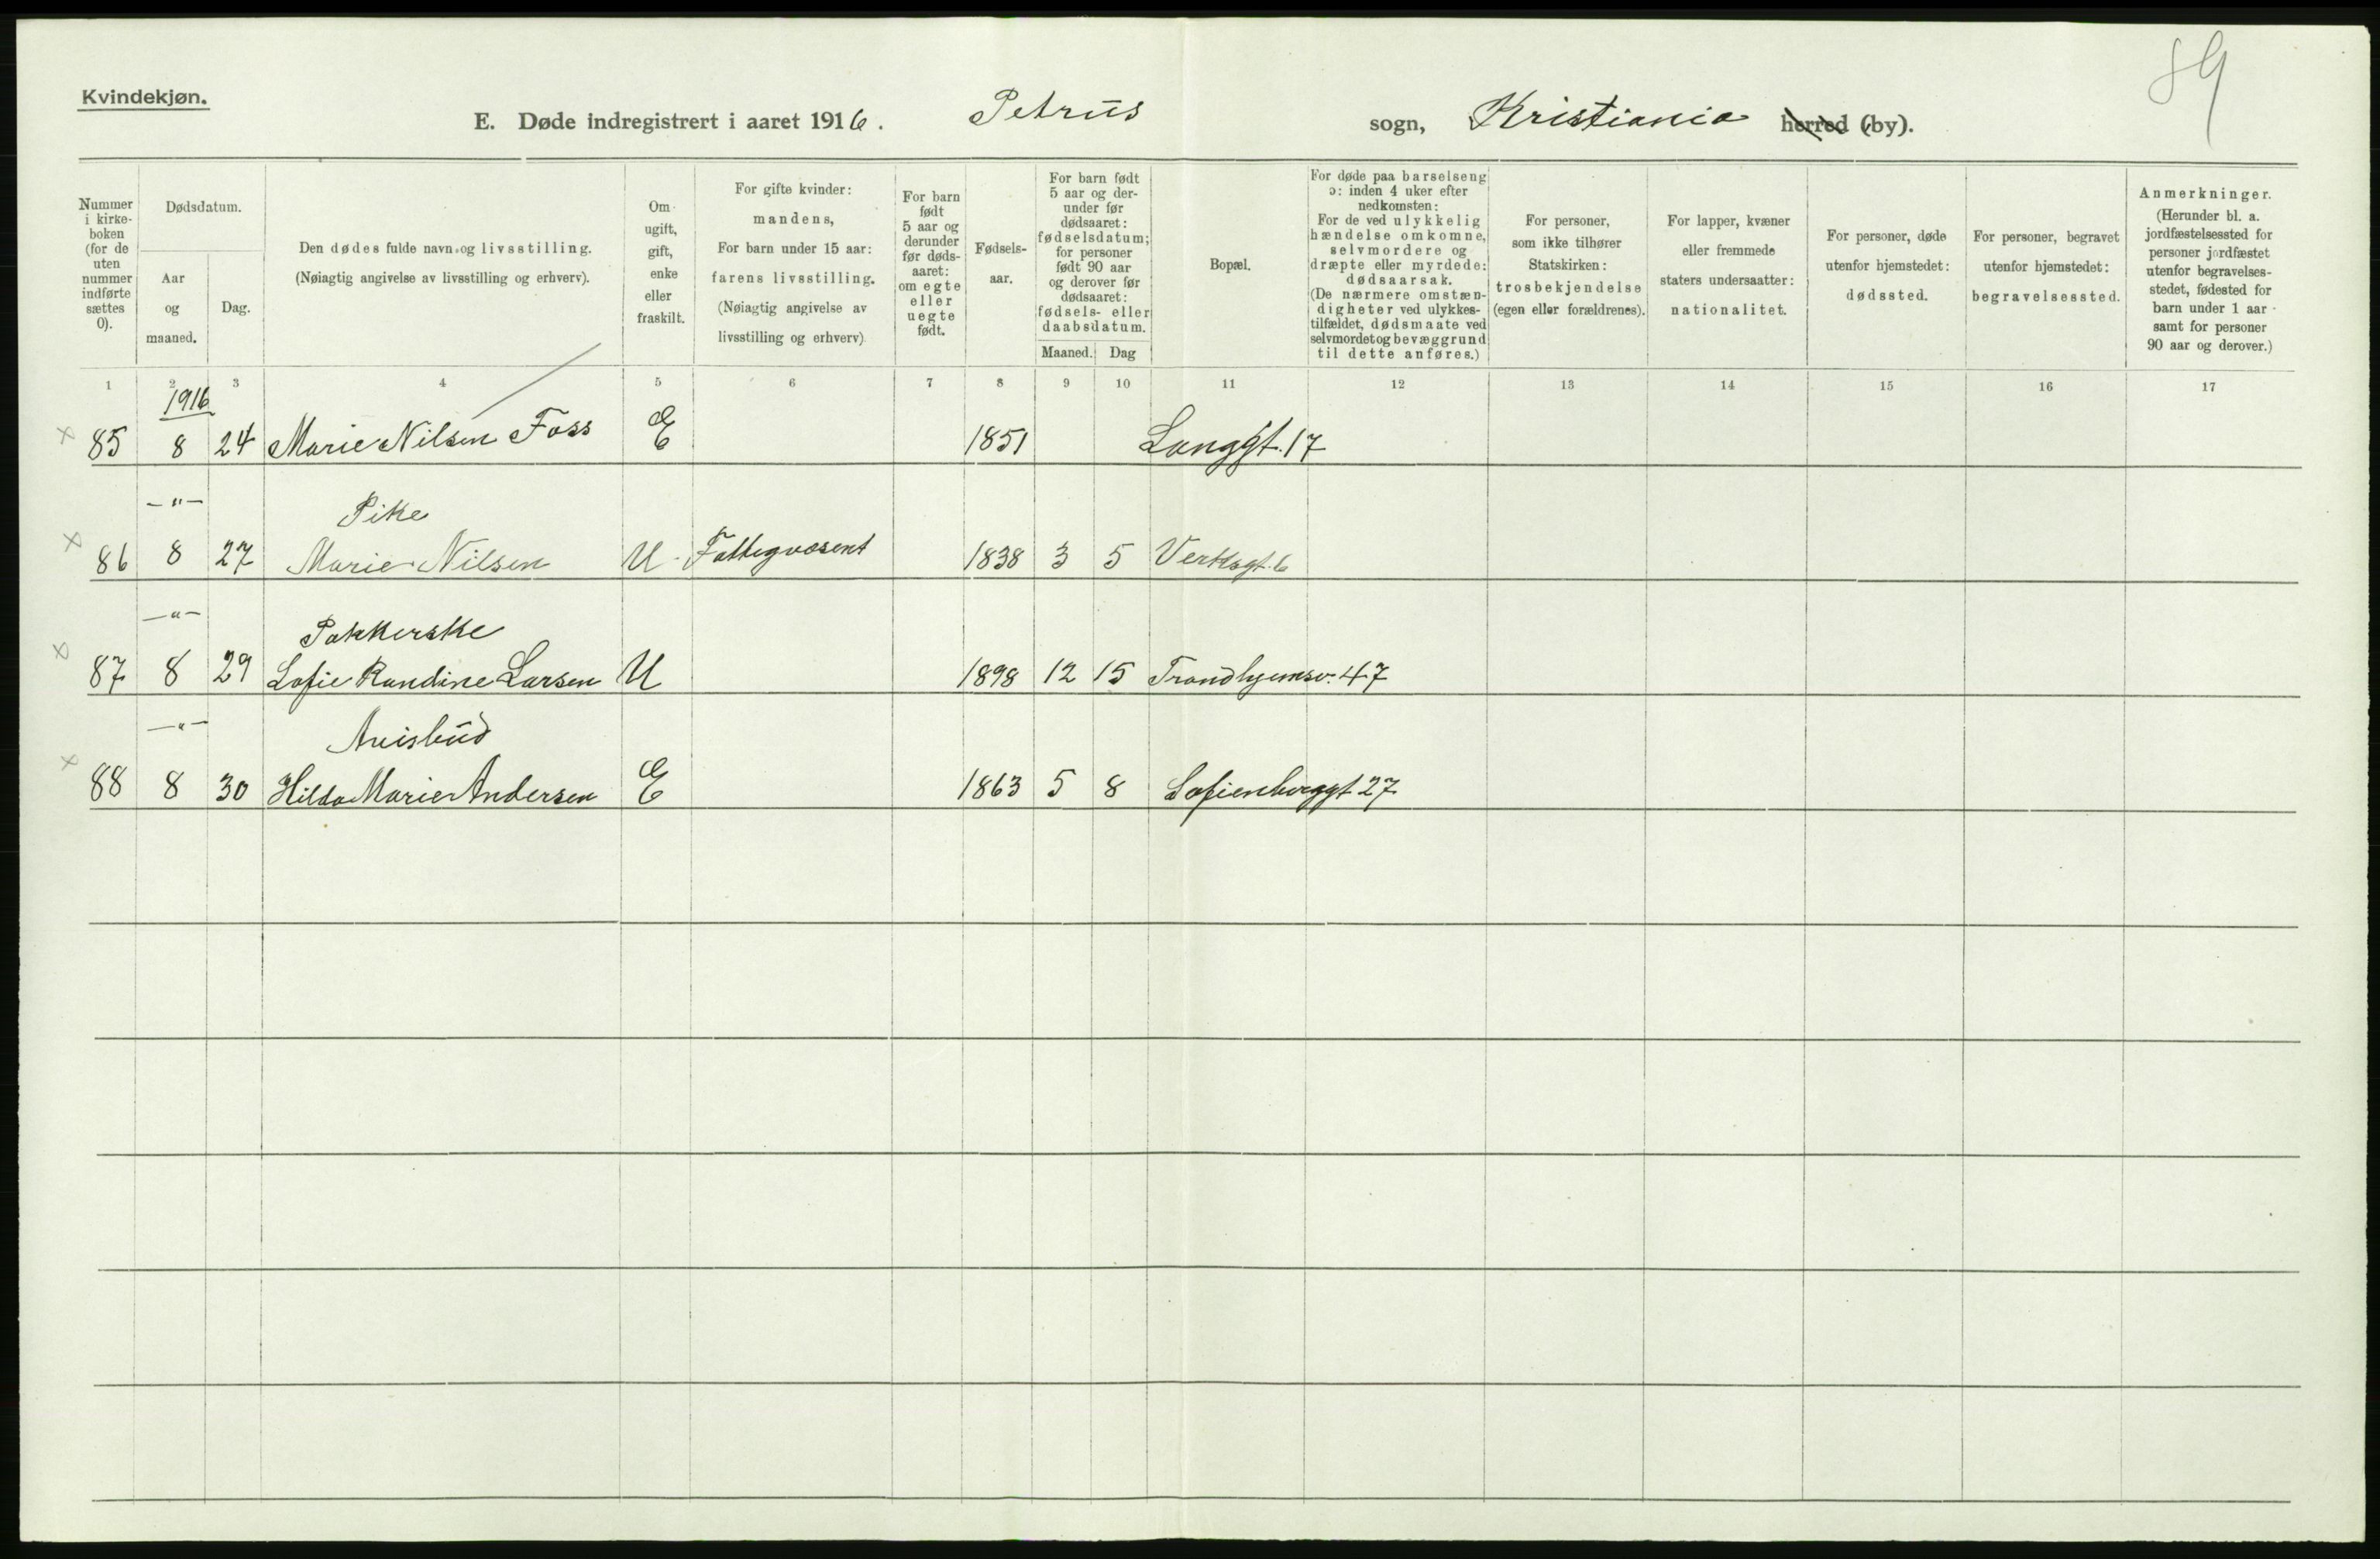 89
Kvindekjøn.
E. Døde indregistrert i aaret 1916. Petrus sogn, Kristiania herred (by).
Nummer i kirke-boken (for de uten nummer indførte sættes 0).
Dødsdatum.
Aar og maaned.
Dag.
Den dødes fulde navn og livsstilling.
(Nøiagtig angivelse av livsstilling og erhverv).
Om ugift, gift, enke eller fraskilt.
For gifte kvinder:
mandens,
For barn under 15 aar:
farens livsstilling.
(Nøiagtig angivelse av
livsstilling og erhverv)
For barn født 5 aar og derunder før døds-aaret: om egte eller uegte født.
Fødsels-aar.
For barn født 5 aar og der-under før dødsaaret: fødselsdatum; for personer født 90 aar og derover før dødsaaret: fødsels- eller daabsdatum.
Maaned. Dag
Bopæl.
For døde paa barselseng ɔ: inden 4 uker efter nedkomsten: For de ved ulykkelig hændelse omkomne, selvmordere og dræpte eller myrdede: dødsaarsak. (De nærmere omstæn-digheter ved ulykkes-tilfældet, dødsmaate ved selvmordet og bevæggrund til dette anføres.)
For personer, som ikke tilhører Statskirken: trosbekjendelse (egen eller forældrenes).
For lapper, kvæner eller fremmede staters undersaatter: nationalitet.
For personer, døde utenfor hjemstedet: dødssted.
For personer, begravet utenfor hjemstedet: begravelsessted.
Anmerkninger.
(Herunder bl. a. jordfæstelsessted for personer jordfæstet utenfor begravelses-stedet, fødested for barn under 1 aar samt for personer 90 aar og derover.)
1 2 3 4 5 6 7 8 9 10 11 12 13 14 15 16 17
1916
x 85 8 24 Marie Nilsen Foss E 1851 Langgt. 17
—"— Pike
x 86 8 27 Marie Nilsen U. Fattigvæsent 1838 3 5 Verksgt. 6
—"— Pakkerske
x 87 8 29 Sofie Randine Larsen U 1898 12 15 Trondhjemsv. 47
—"— Avisbud
x 88 8 30 Hilda Marie Andersen E 1863 5 8 Sofienberggt 27